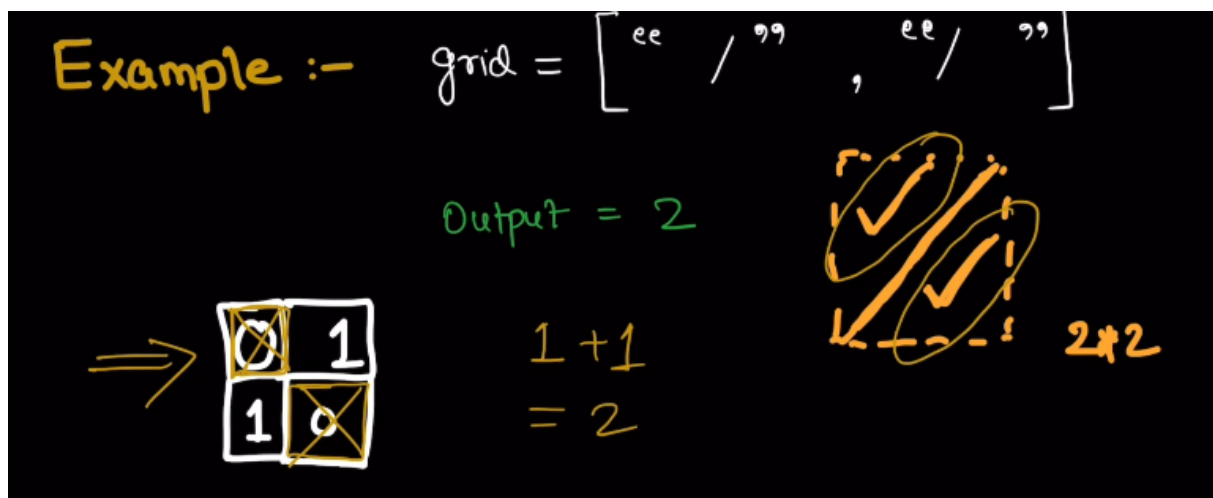 Example :- grid = [ " /" , "/ " ]
Output = 2
0 1
1 0
1 + 1
= 2
2*2